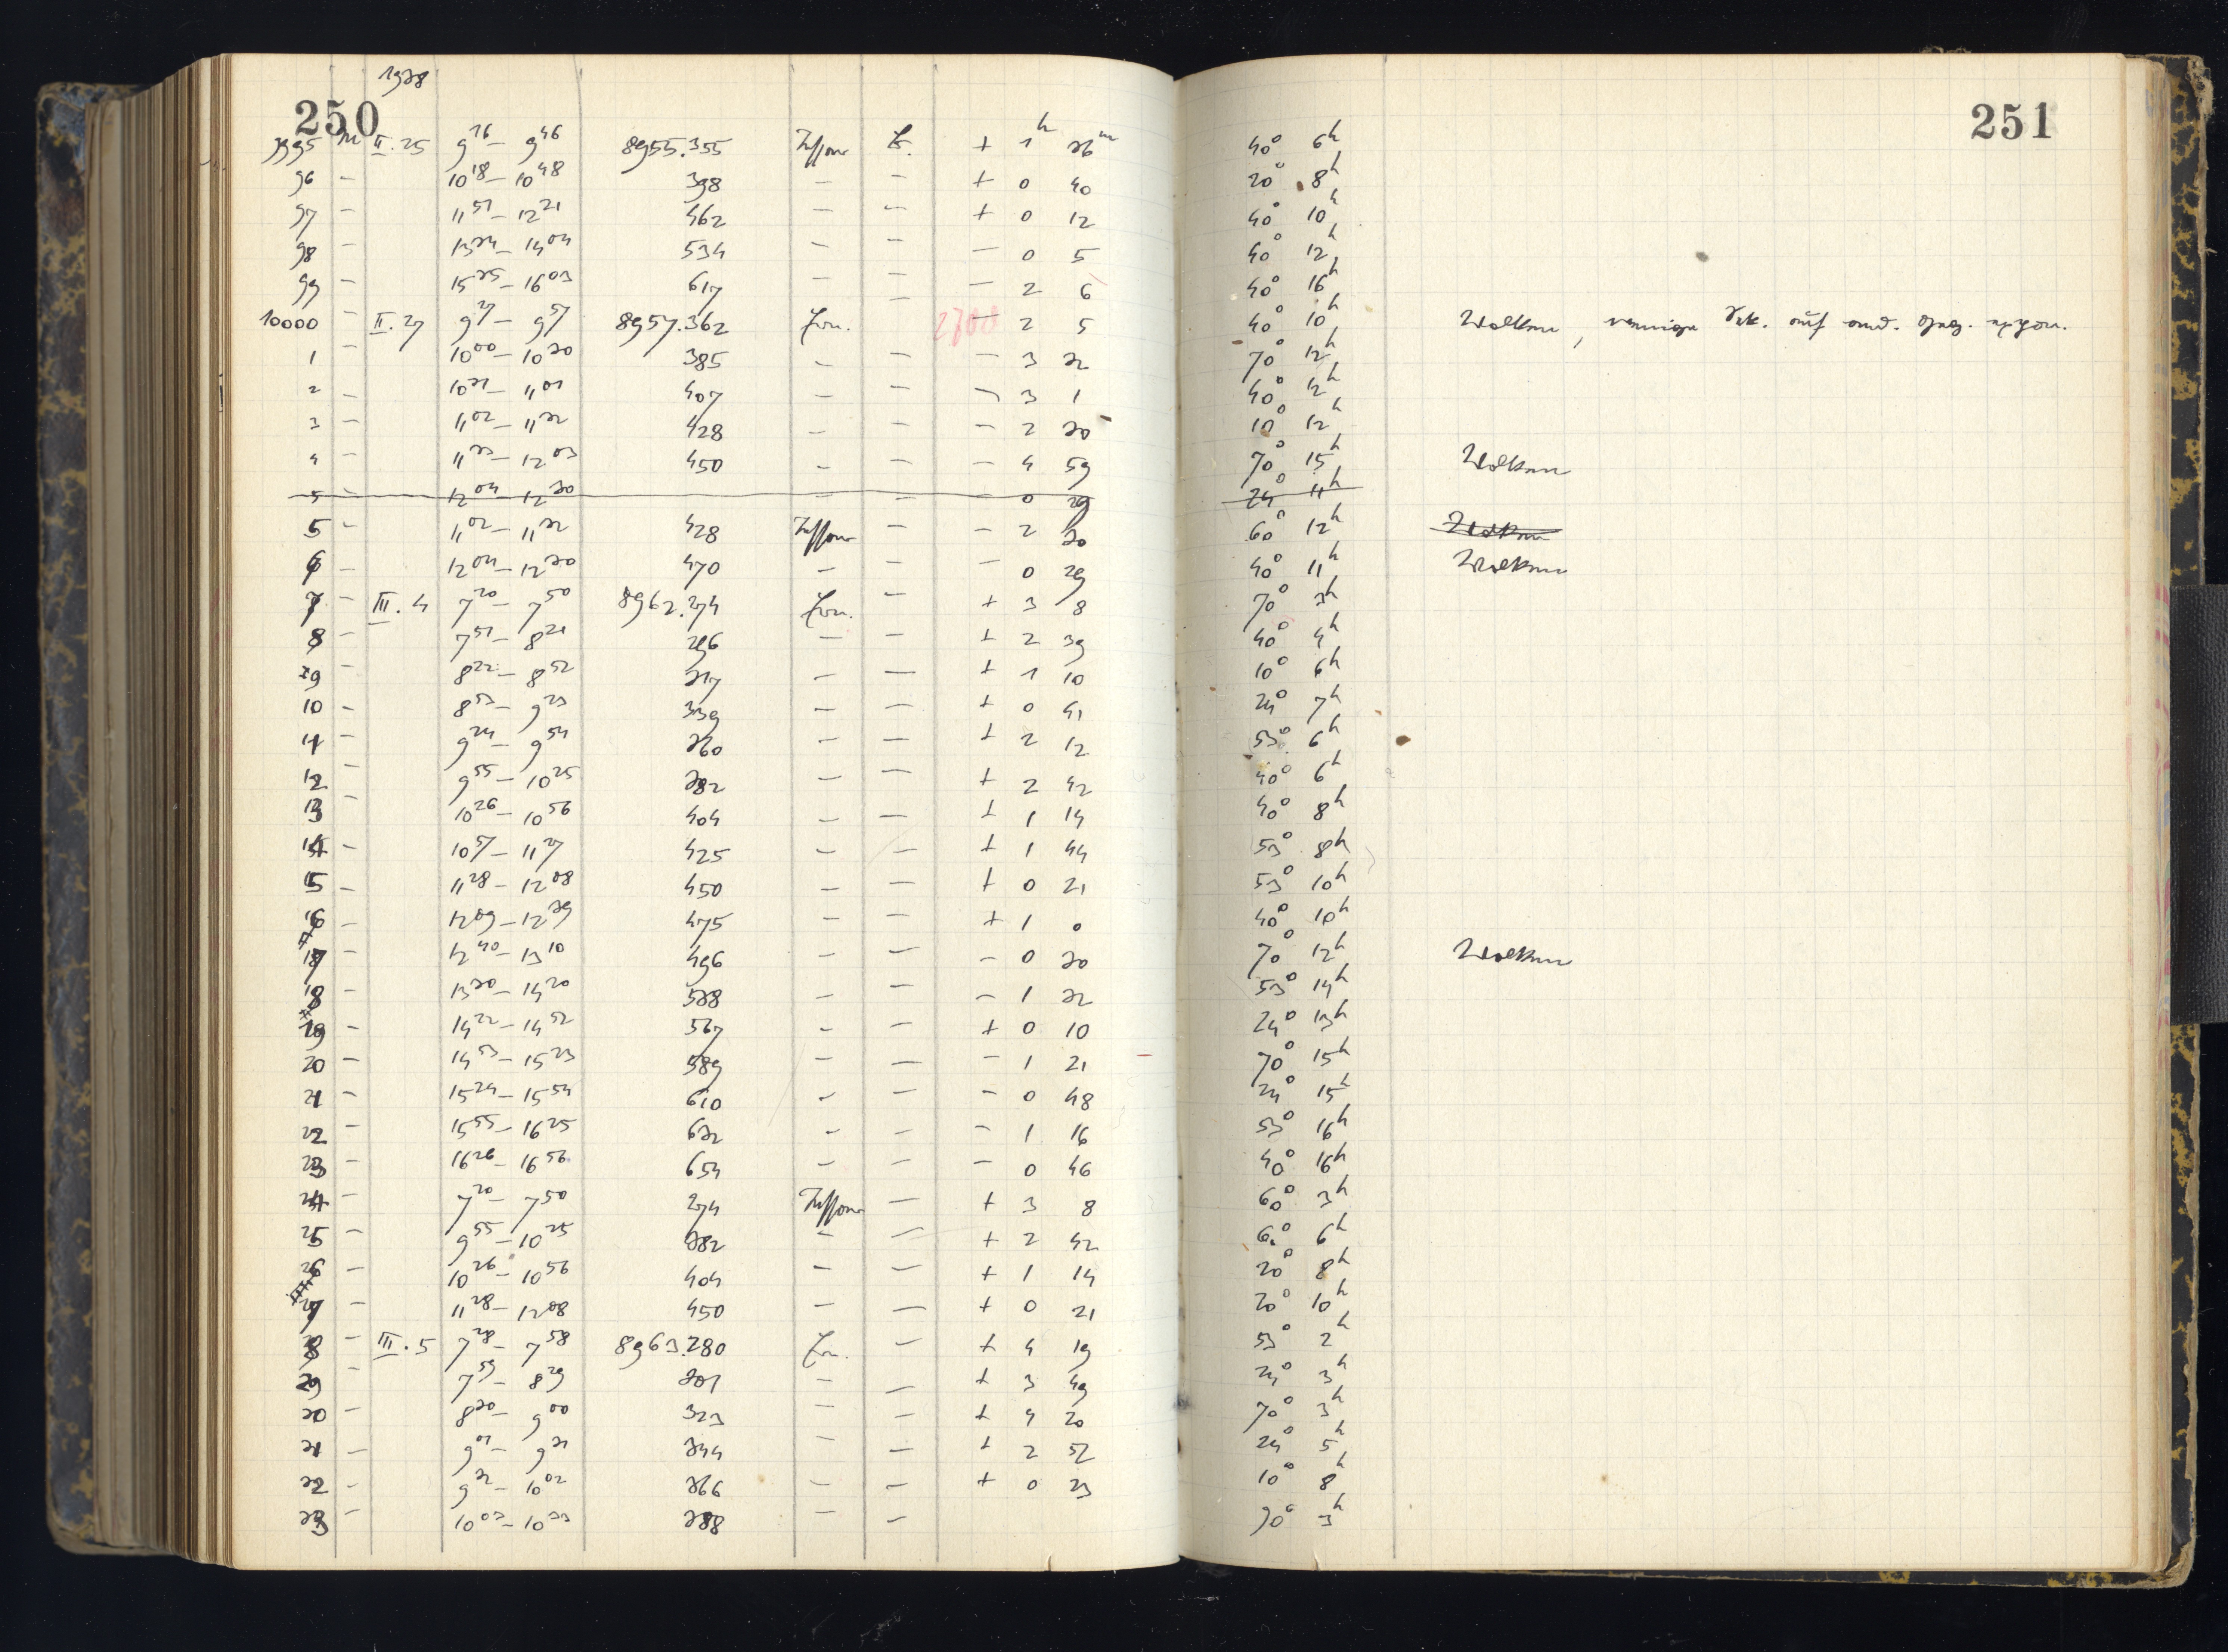 250
1938
251
9995 M II.25 9^16 – 9^46 8955.355 Tessar + 1^h 36^m 40° 6^h
96 – 10^18 – 10^48 398 – – + 0 40 20° 8^h
97 – 11^51 – 12^21 462 – – + 0 12 40° 10^h
98 – 13^34 – 14^04 534 – – – 0 5 40° 12^h
99 – 15^33 – 16^03 617 – – – 2 6 40° 16^h
10000 – II.27 9^27 – 9^57 8957.362 Ern. – – 2 5 40° 10^h Wolken, wenige auf and.
1 – 10^00 – 10^30 385 – – – 3 32 70° 12^h
2 – 10^31 – 11^01 407 – – – 3 1 40° 12^h
3 – 11^02 – 11^32 428 – – – 2 30 10° 12^h
4 – 11^33 – 12^03 450 – – – 4 59 70° 15^h Wolken
5 – 12^04 – 12^30 – – – 0 29 24° 11^h
5 – 11^02 – 11^32 428 Tessar – – 2 30 60° 12^h Wolken
6 – 12^04 – 12^30 470 – – – 0 29 40° 11^h Wolken
7 – III.4 7^20 – 7^50 8962.274 Ern. – + 3 8 70° 3^h
8 – 7^51 – 8^21 296 – – + 2 39 40° 4^h
9 – 8^22 – 8^52 317 – – + 1 10 10° 6^h
10 – 8^53 – 9^23 339 – – + 0 41 24° 7^h
11 – 9^24 – 9^54 360 – – + 2 12 53° 6^h
12 – 9^55 – 10^25 382 – – + 2 42 40° 6^h
13 – 10^26 – 10^56 404 – – + 1 14 40° 8^h
14 – 10^57 – 11^27 425 – – + 1 44 53° 8^h
15 – 11^28 – 12^08 450 – – + 0 21 53° 10^h
16 – 12^09 – 12^39 475 – – + 1 0 40° 10^h
17 – 12^40 – 13^10 496 – – – 0 30 70° 12^h Wolken
18 – 13^30 – 14^20 538 – – – 1 32 53° 14^h
19 – 14^22 – 14^52 567 – – + 0 10 24° 13^h
20 – 14^53 – 15^23 589 – – – 1 21 70° 15^h
21 – 15^24 – 15^54 610 – – – 0 48 24° 15^h
22 – 15^55 – 16^25 632 – – – 1 16 53° 16^h
23 – 16^26 – 16^56 654 – – – 0 46 40° 16^h
24 – 7^20 – 7^50 274 Tessar – + 3 8 60° 3^h
25 – 9^55 – 10^25 382 – – + 2 42 60° 6^h
26 – 10^26 – 10^56 404 – – + 1 14 20° 8^h
27 – 11^28 – 12^08 450 – – + 0 21 20° 10^h
28 – III.5 7^28 – 7^58 8963.280 Ern. – + 4 19 53° 2^h
29 – 7^59 – 8^29 301 – – + 3 49 24° 3^h
30 – 8^30 – 9^00 323 – – + 4 20 70° 3^h
31 – 9^01 – 9^31 344 – – + 2 52 24° 5^h
32 – 9^32 – 10^02 366 – – + 0 23 10° 8^h
33 – 10^03 – 10^33 388 – – 90° 3^h